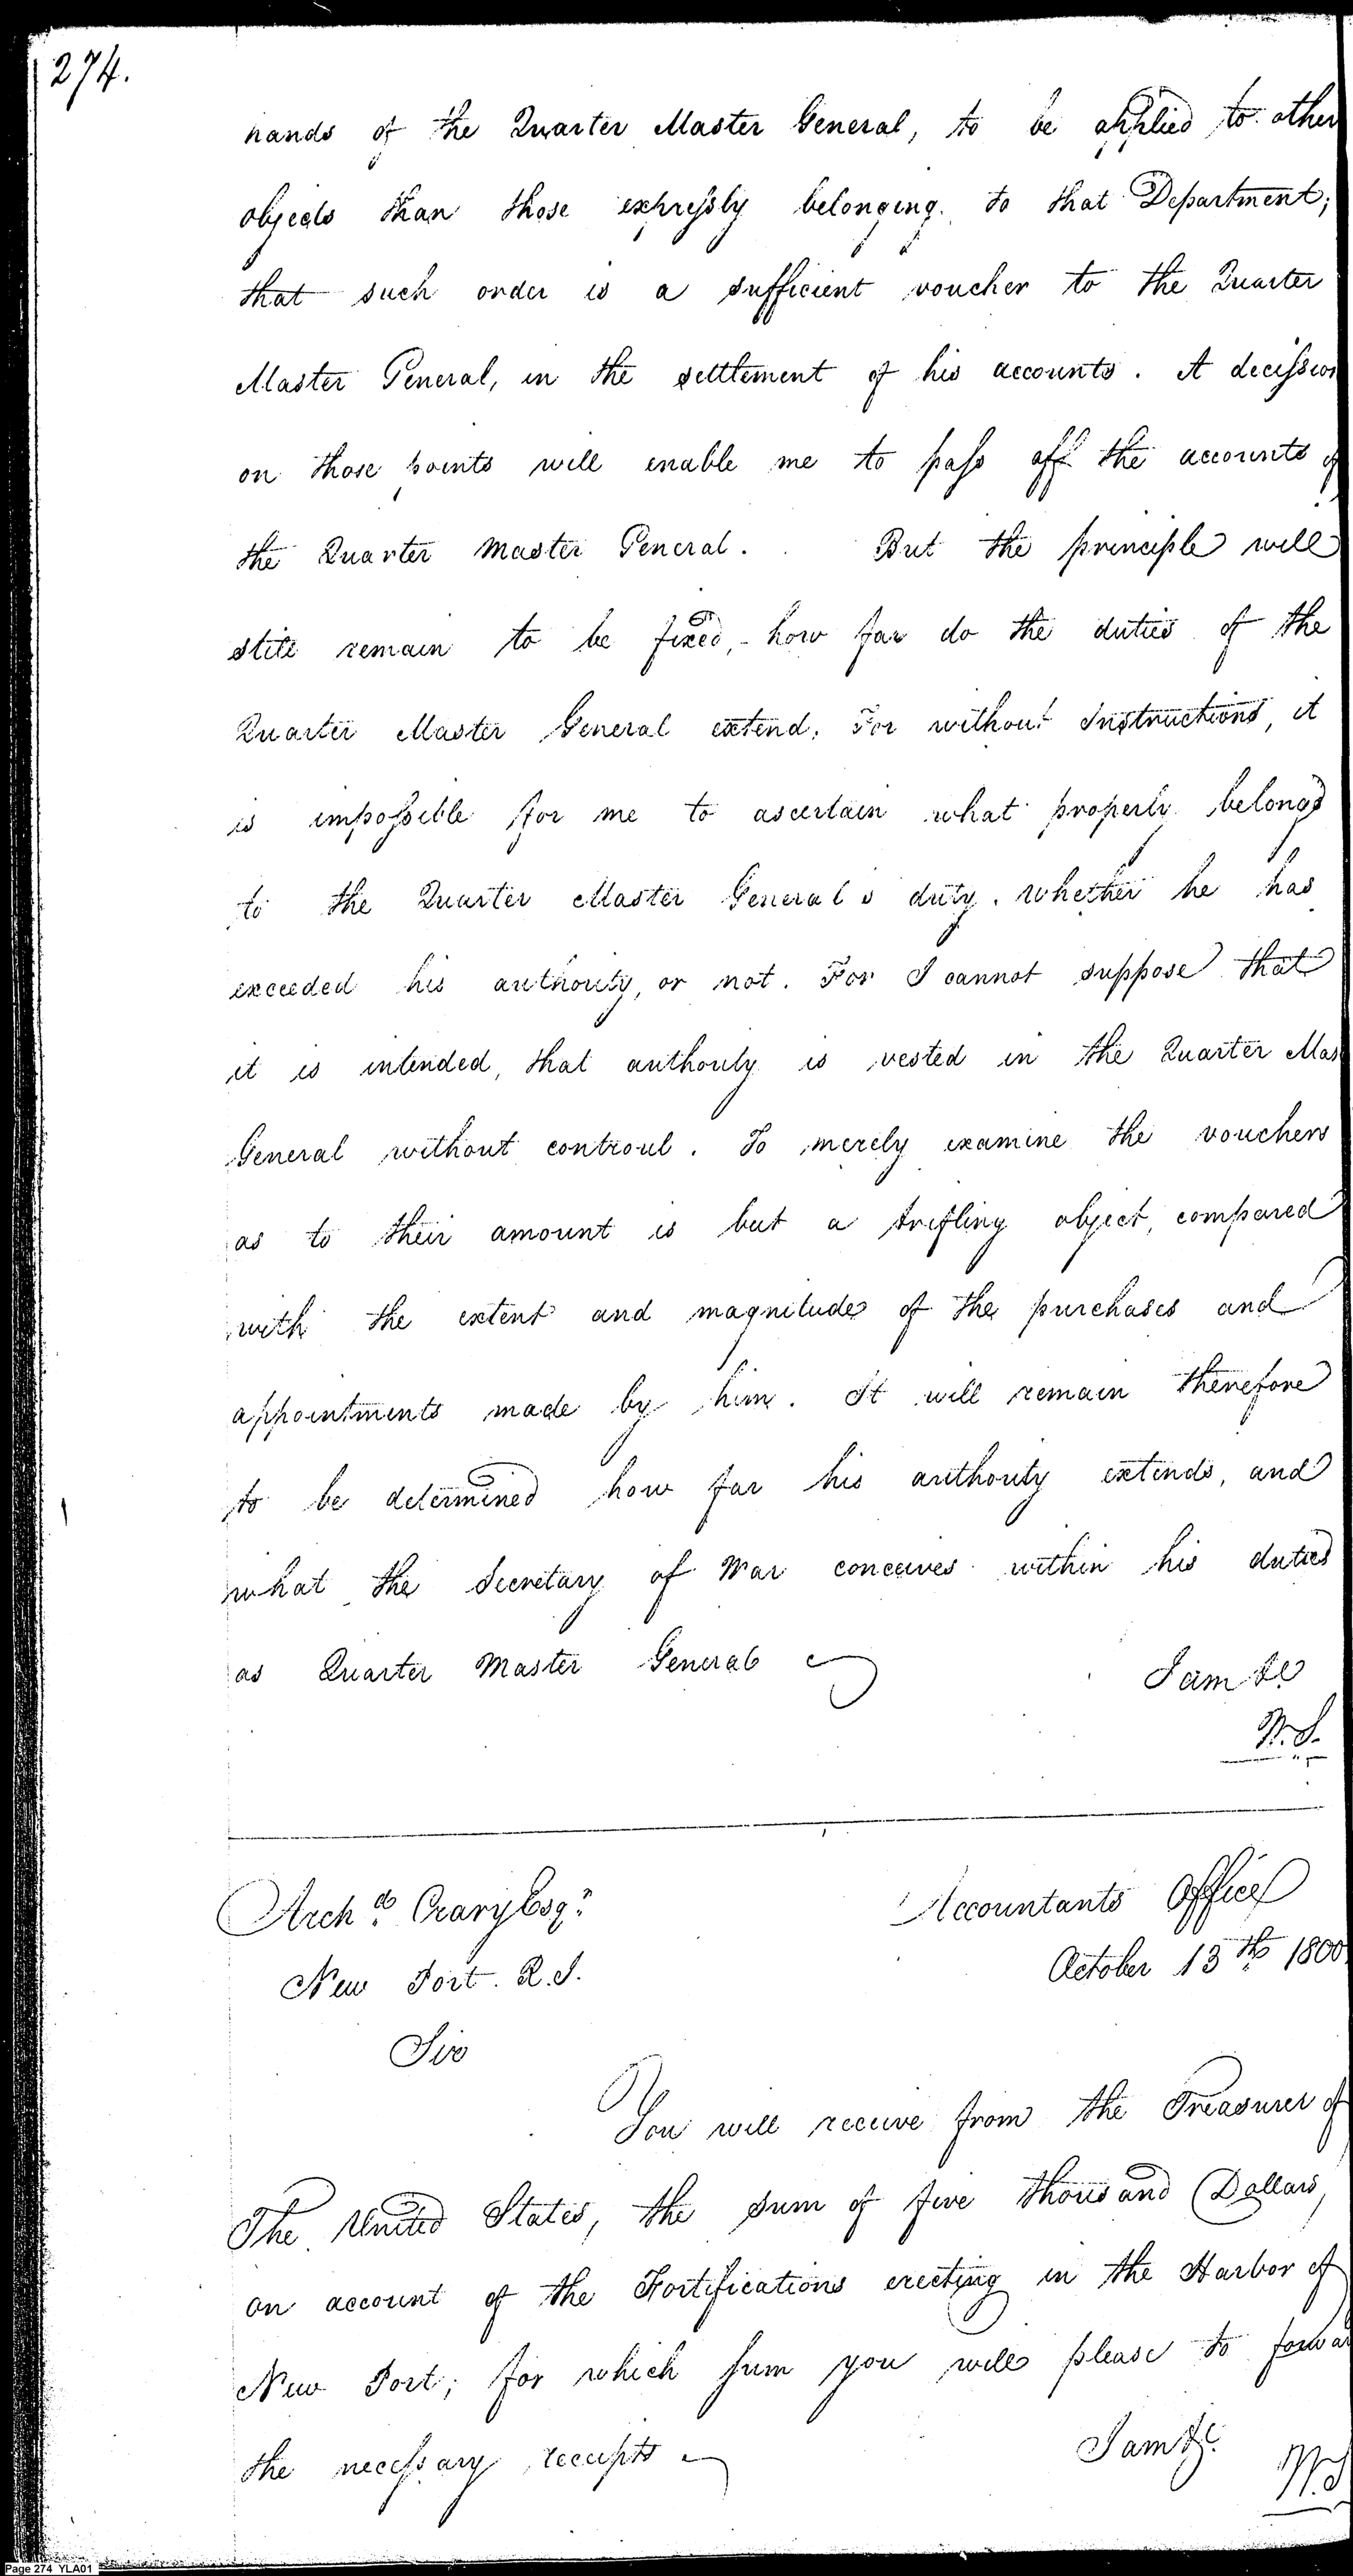 274.
hands of the Quarter Master General, to be applied to other
objects than those expressly belonging to that Department;
that such order is a sufficient voucher to the Quarter
Master General, in the settlement of his accounts. A decission
on those points will enable me to pass off the accounts of
the Quarter Master General. But the principle will
still remain to be fixed, - how far do the duties of the
Quarter Master General extend. For without Instructions, it
is impossible for me to ascertain what properly belongs
to the Quarter Master General's duty. whether he has
exceeded his authority, or not. For I cannot suppose that
it is intended, that authority is vested in the Quarter Mas
General without controul. To merely examine the vouchers
as to their amount is but a trifling object, compared
with the extent and magnitude of the purchases and
appointments made by him. It will remain therefore
to be determined how far his authority extends, and
what the Secretary of War conceives within his duties
as Quarter Master General
I am &c
W.S.
Archd. Crary Esqr.
Accountants Office
New Port. R.I.
October 13th 1800
Sir
You will receive from the Treasurer of
The United States, the sum of five thousand Dollars,
on account of the Fortifications erecting in the Harbor of
New Port; for which sum you will please to forwar
the necessary receipts
I am &c.
W.S
Page 274 YLA01